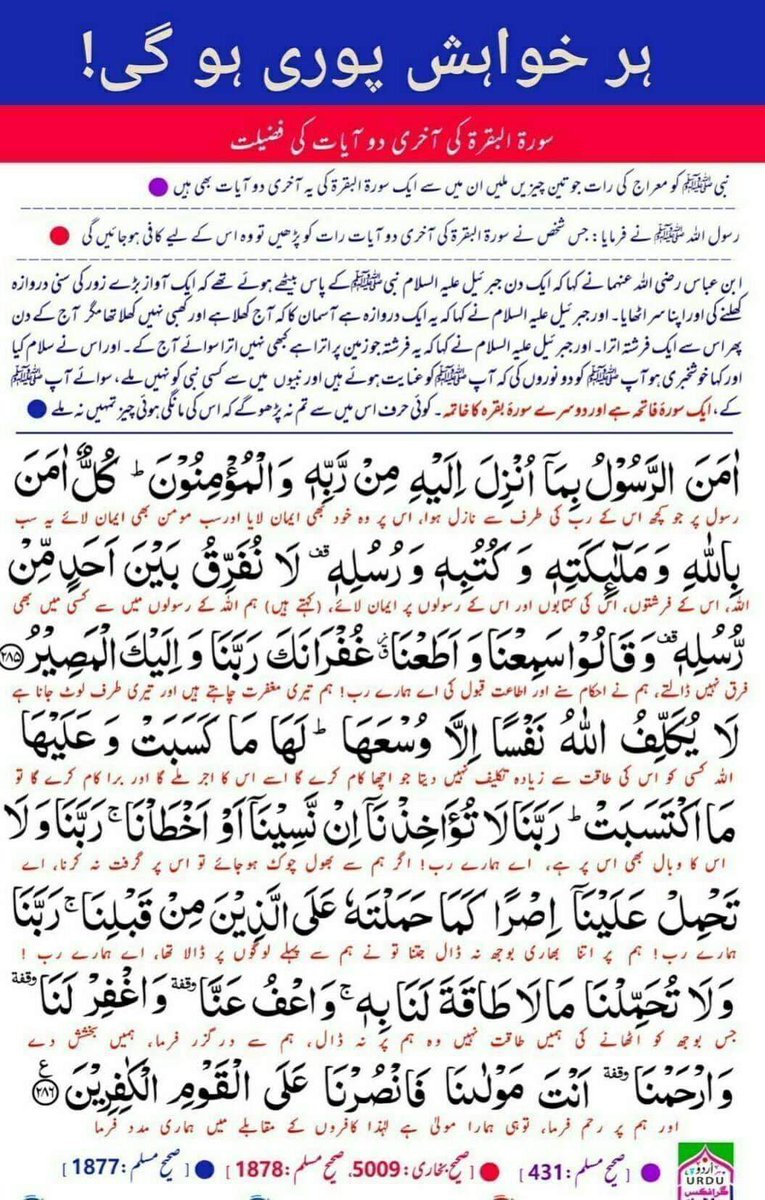 ہر خواہش پوری ہو گی!
سورۃ البقرۃ کی آخری دو آیات کی فضیلت
نبی ﷺ کو معراج کی رات جو تین چیزیں ملیں ان میں سے ایک سورۃ البقرۃ کی یہ آخری دو آیات بھی ہیں
رسول اللہ ﷺ نے فرمایا: جس شخص نے سورۃ البقرۃ کی آخری دو آیات رات کو پڑھیں تو وہ اس کے لیے کافی ہوجائیں گی
ابن عباس رضی اللہ عنہما نے کہا کہ ایک دن جبرئیل علیہ السلام نبی ﷺ کے پاس بیٹھے ہوئے تھے کہ ایک آواز بڑے زور کی سنی دروازہ
کھلنے کی اور اپنا سر اٹھایا۔ اور جبرئیل علیہ السلام نے کہا کہ یہ ایک دروازہ ہے آسمان کا کہ آج کھلا ہے اور کبھی نہیں کھلا تھا مگر آج کے دن
پھر اس سے ایک فرشتہ اترا۔ اور جبرئیل علیہ السلام نے کہا کہ یہ فرشتہ جو زمین پر اترا ہے کبھی نہیں اترا سوائے آج کے۔ اور اس نے سلام کیا
اور کہا خوشخبری ہو آپ ﷺ کو دو نوروں کی کہ آپ ﷺ کو عنایت ہوئے ہیں اور نبیوں میں سے کسی نبی کو نہیں ملے، سوائے آپ ﷺ
کے، ایک سورۂ فاتحہ ہے اور دوسرے سورۂ بقرہ کا خاتمہ۔ کوئی حرف اس میں سے تم نہ پڑھو گے کہ اس کی مانگی ہوئی چیز تمہیں نہ ملے
اٰمَنَ الرَّسُوْلُ بِمَآ اُنْزِلَ اِلَيْهِ مِنْ رَّبِّهٖ وَالْمُؤْمِنُوْنَ ؕ كُلٌّ اٰمَنَ
رسول پر جو کچھ اس کے رب کی طرف سے نازل ہوا، اس پر وہ خود بھی ایمان لایا اور سب مومن بھی ایمان لائے یہ سب
بِاللّٰهِ وَمَلٰٓئِكَتِهٖ وَكُتُبِهٖ وَرُسُلِهٖ قف لَا نُفَرِّقُ بَيْنَ اَحَدٍ مِّنْ
اللہ، اس کے فرشتوں، اس کی کتابوں اور اس کے رسولوں پر ایمان لائے، (کہتے ہیں) ہم اللہ کے رسولوں میں سے کسی میں بھی
رُّسُلِهٖ قف وَقَالُوْا سَمِعْنَا وَاَطَعْنَا غُفْرَانَكَ رَبَّنَا وَاِلَيْكَ الْمَصِيْرُ ۲۸۵
فرق نہیں ڈالتے، ہم نے احکام سنے اور اطاعت قبول کی اے ہمارے رب! ہم تیری مغفرت چاہتے ہیں اور تیری طرف لوٹ جانا ہے
لَا يُكَلِّفُ اللّٰهُ نَفْسًا اِلَّا وُسْعَهَا ؕ لَهَا مَا كَسَبَتْ وَعَلَيْهَا
اللہ کسی کو اس کی طاقت سے زیادہ تکلیف نہیں دیتا جو اچھا کام کرے گا اسے اس کا اجر ملے گا اور برا کام کرے گا تو
مَا اكْتَسَبَتْ ؕ رَبَّنَا لَا تُؤَاخِذْنَآ اِنْ نَّسِيْنَآ اَوْ اَخْطَاْنَا ۚ رَبَّنَا وَلَا
اس کا وبال بھی اس پر ہے، اے ہمارے رب! اگر ہم سے بھول چوک ہوجائے تو اس پر گرفت نہ کرنا، اے
تَحْمِلْ عَلَيْنَآ اِصْرًا كَمَا حَمَلْتَهٗ عَلَى الَّذِيْنَ مِنْ قَبْلِنَا ۚ رَبَّنَا
ہمارے رب! ہم پر اتنا بھاری بوجھ نہ ڈال جتنا تو نے ہم سے پہلے لوگوں پر ڈالا تھا، اے ہمارے رب!
وَلَا تُحَمِّلْنَا مَا لَا طَاقَةَ لَنَا بِهٖ ۚ وَاعْفُ عَنَّا وقفة وَاغْفِرْ لَنَا وقفة
جس بوجھ کو اٹھانے کی ہمیں طاقت نہیں وہ ہم پر نہ ڈال، ہم سے درگزر فرما، ہمیں بخشش دے
وَارْحَمْنَا وقفة اَنْتَ مَوْلٰىنَا فَانْصُرْنَا عَلَى الْقَوْمِ الْكٰفِرِيْنَ ۲۸۶ ع
اور ہم پر رحم فرما، تو ہی ہمارا مولیٰ ہے لہٰذا کافروں کے مقابلے میں ہماری مدد فرما
[صحیح مسلم: 431] [صحیح بخاری: 5009، صحیح مسلم: 1878] [صحیح مسلم: 1877]
اردو
URDU
گرافکس